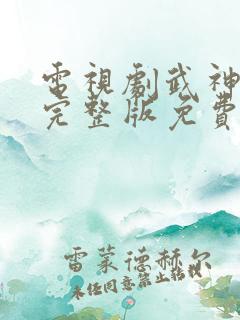 電視劇武神
完整版免費
雷蒙德赫尔
未经同意禁止转载